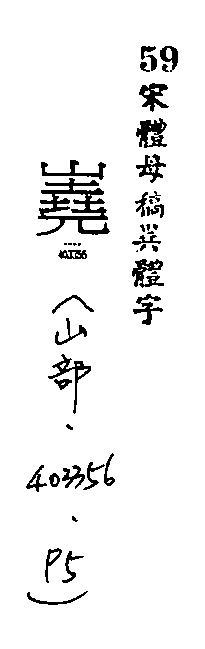 59宋體母稿異體字
嶤
403356
（山部、403356、P5）